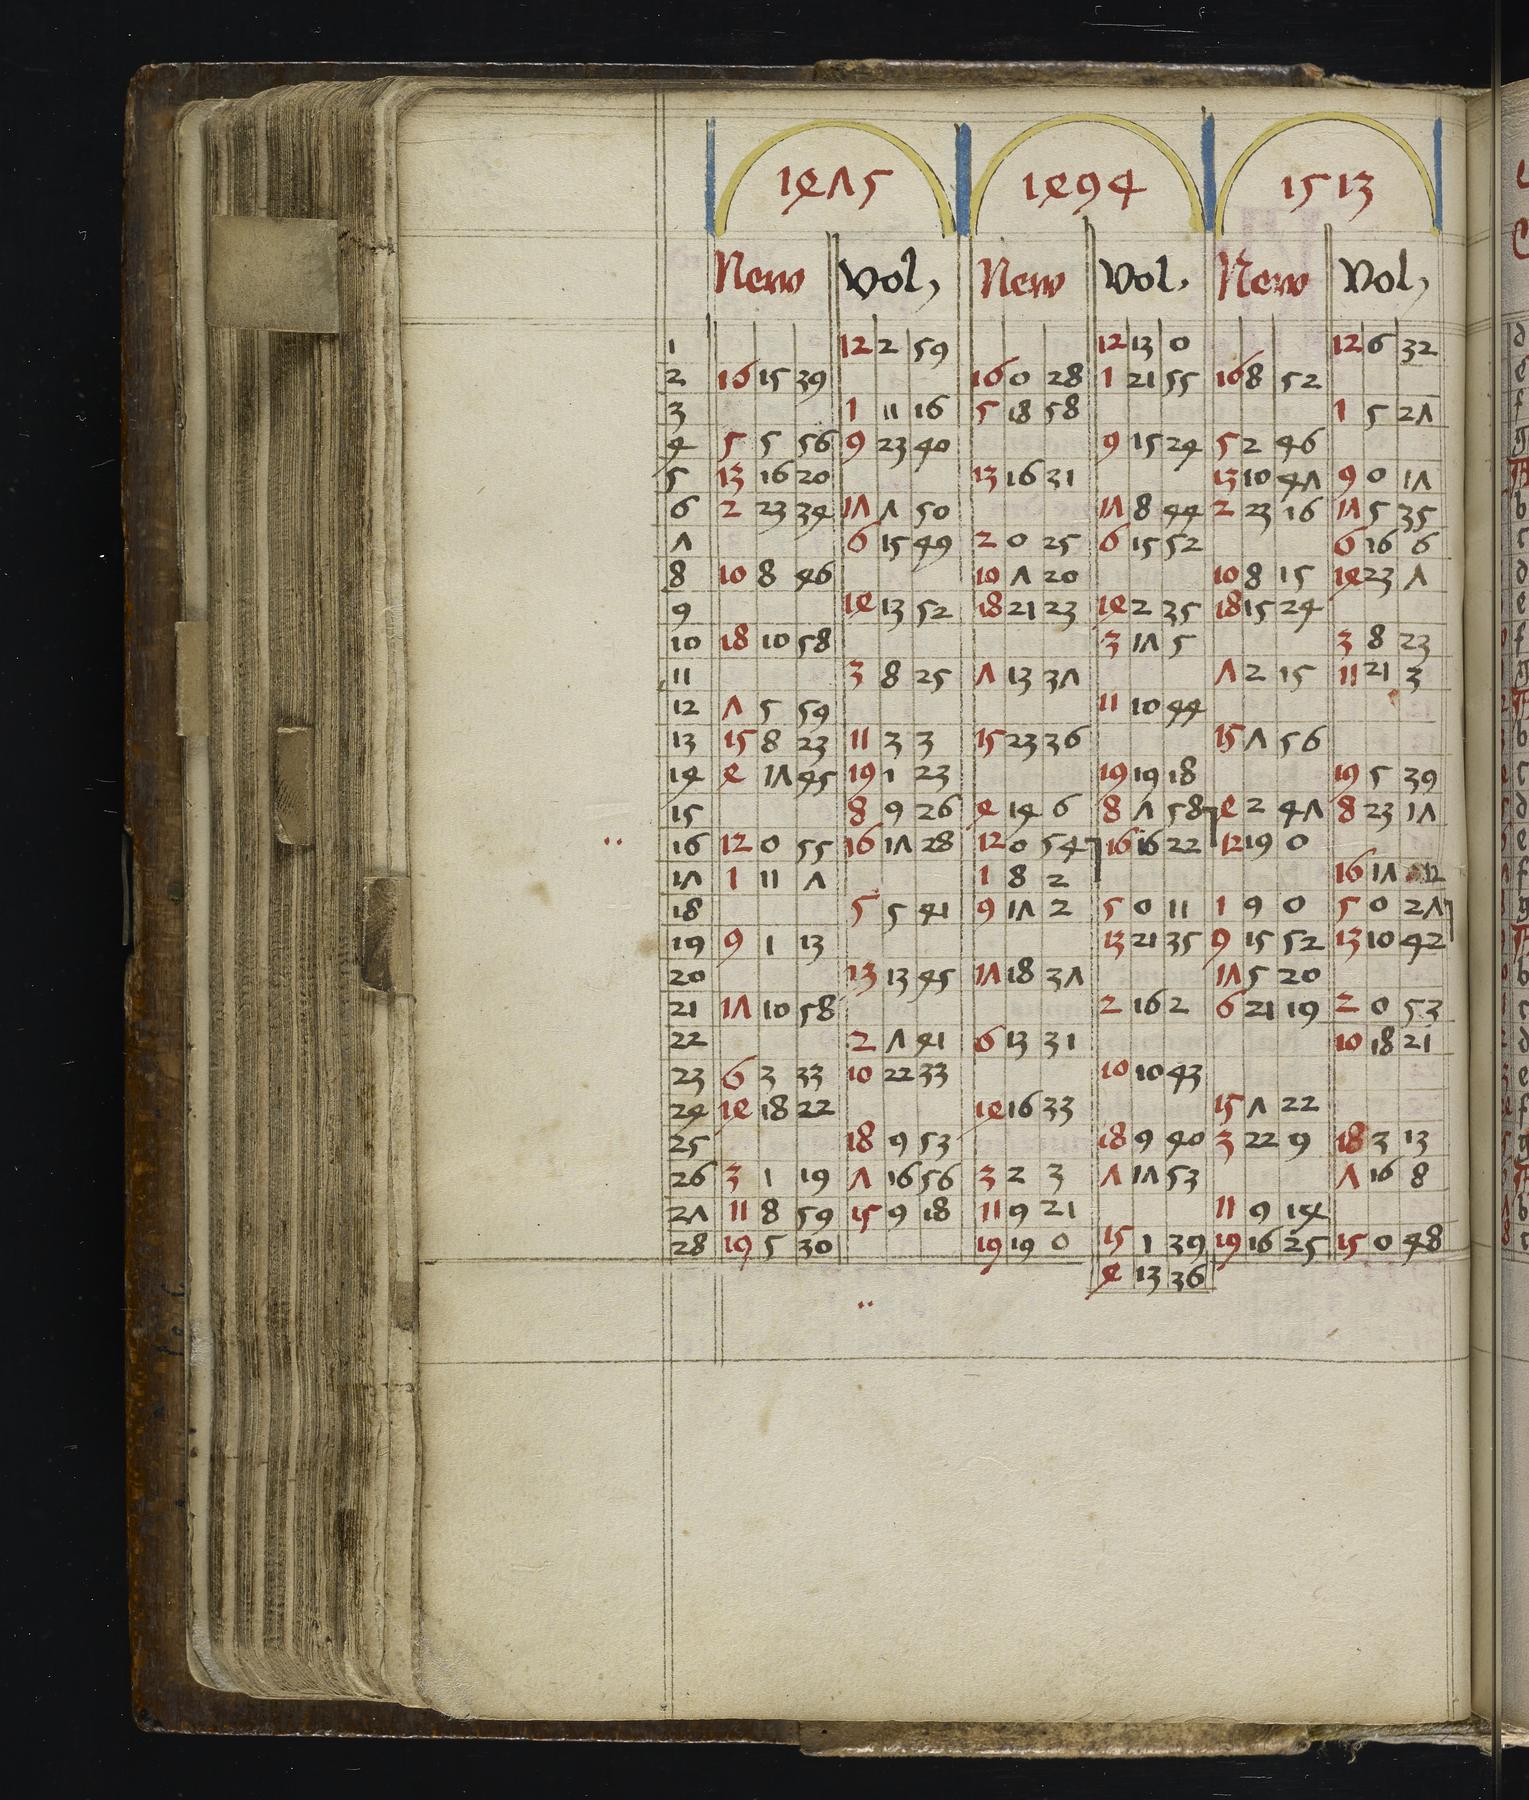 1475 1494 1513
New Vol, New Vol. New Vol,
1 12 2 59 12 13 0 12 6 32
2 16 15 39 16 0 28 1 21 55 16 8 52
3 1 11 16 5 18 58 1 5 27
4 5 5 56 9 23 40 9 15 24 5 2 46
5 13 16 20 13 16 31 13 10 47 9 0 17
6 2 23 34 17 7 50 17 8 44 2 23 16 17 5 35
7 6 15 49 2 0 25 6 15 52 6 16 6
8 10 8 46 10 7 20 10 8 15 14 23 7
9 14 13 52 18 21 23 14 2 35 18 15 24
10 18 10 58 3 17 5 3 8 23
11 3 8 25 7 13 37 7 2 15 11 21 3
12 7 5 59 11 10 44
13 15 8 23 11 3 3 15 23 36 15 7 56
14 4 17 45 19 1 23 19 19 18 19 5 39
15 8 9 26 4 14 6 8 7 58 4 2 47 8 23 17
16 12 0 55 16 17 28 12 0 54 16 16 22 12 19 0
17 1 11 7 1 8 2 16 17 12
18 5 5 41 9 17 2 5 0 11 1 9 0 5 0 27
19 9 1 13 13 21 35 9 15 52 13 10 42
20 13 13 45 17 18 37 17 5 20
21 17 10 58 2 16 2 6 21 19 2 0 53
22 2 7 41 6 13 31 10 18 21
23 6 3 33 10 22 33 10 10 43
24 14 18 22 14 16 33 15 7 22
25 18 9 53 18 9 40 3 22 9 18 3 13
26 3 1 19 7 16 56 3 2 3 7 17 53 7 16 8
27 11 8 59 15 9 18 11 9 21 11 9 14
28 19 5 30 19 19 0 15 1 39 19 16 25 15 0 48
4 13 36